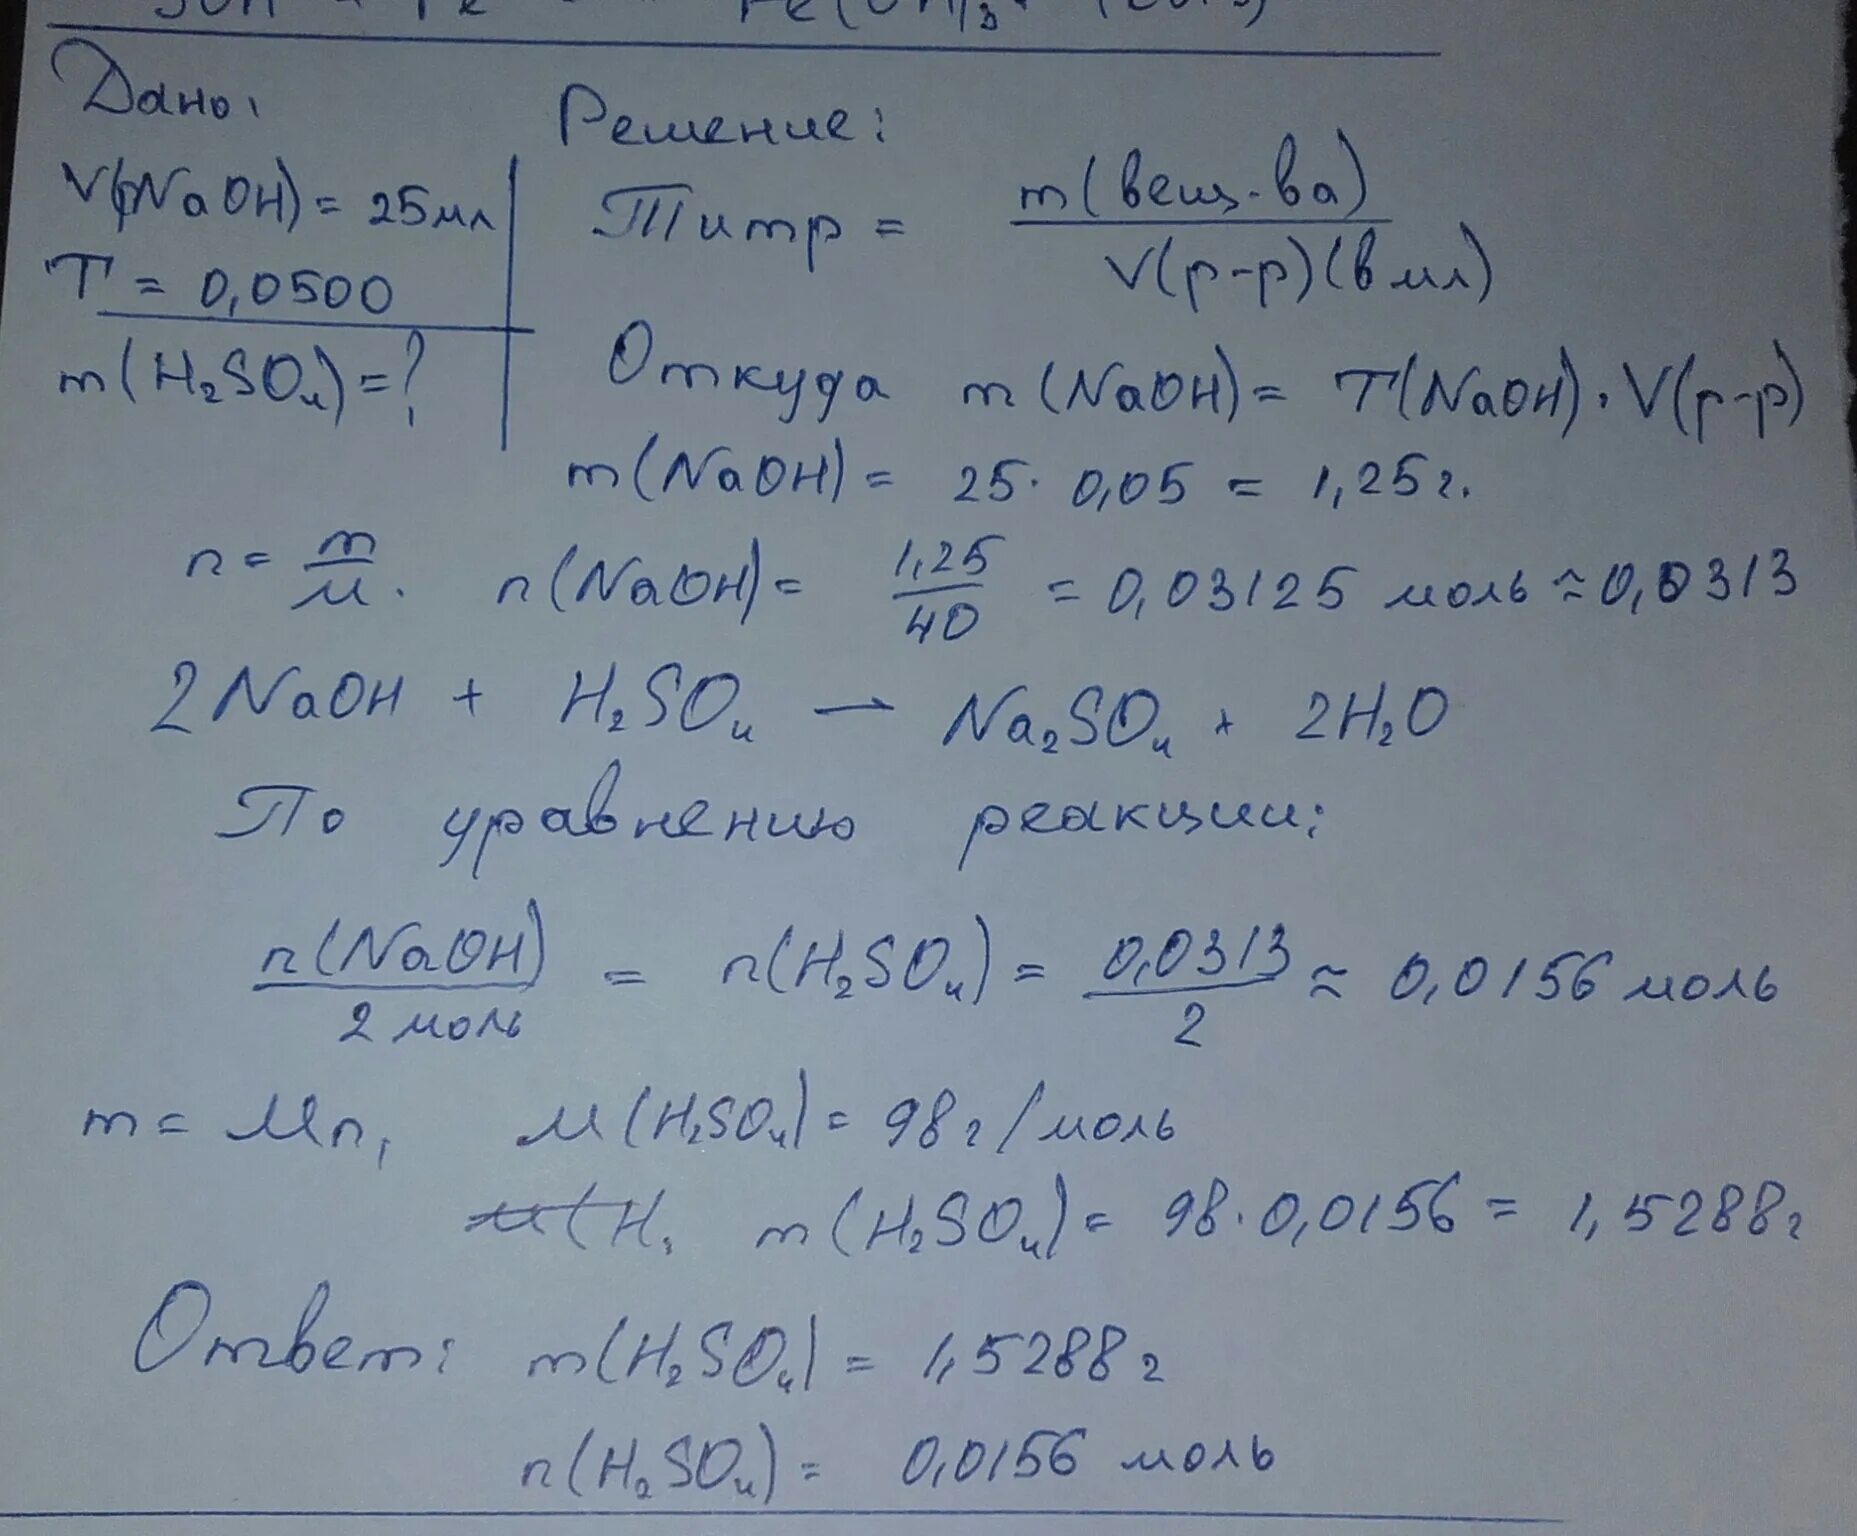 Fe(OH)₃
Дано:
V(NaOH) = 25мл
T = 0,0500
m(H₂SO₄) = ?
Решение:
Титр = m(вещ-ва) / V(р-р)(в мл)
Откуда m(NaOH) = T(NaOH) · V(р-р)
m(NaOH) = 25 · 0,05 = 1,25 г.
n = m / M. n(NaOH) = 1,25 / 40 = 0,03125 моль ≈ 0,0313
2NaOH + H₂SO₄ — Na₂SO₄ + 2H₂O
По уравнению реакции:
n(NaOH) / 2 моль = n(H₂SO₄) = 0,0313 / 2 ≈ 0,0156 моль
m = Mn, M(H₂SO₄) = 98 г/моль
m(H₂SO₄) = 98 · 0,0156 = 1,5288 г
Ответ: m(H₂SO₄) = 1,5288 г
n(H₂SO₄) = 0,0156 моль